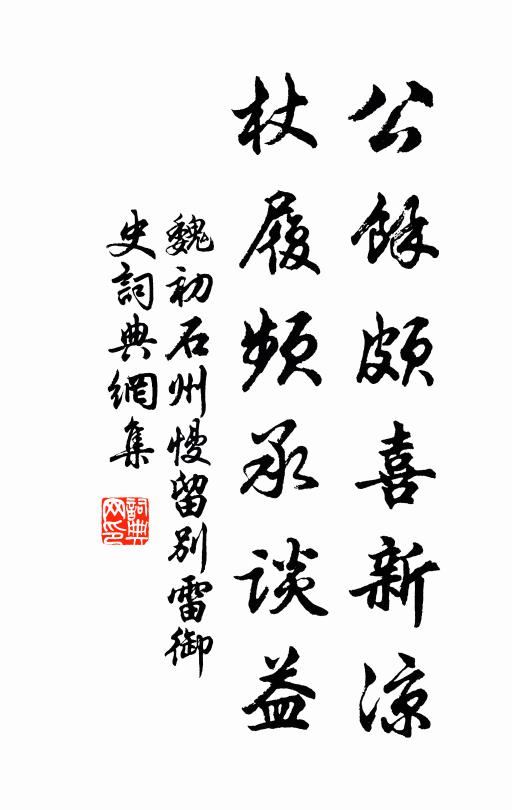 公餘頗喜新涼
杖履頻承談益
魏初石州慢留别雷御
史詞典網集
詞典
网印